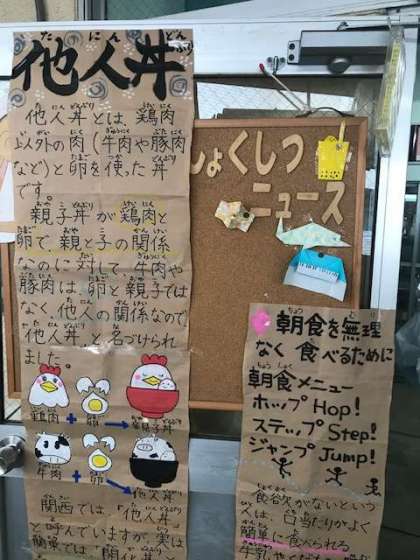 他人丼
他人丼とは、鶏肉
以外の肉(牛肉や豚肉
など)と卵を使った丼
です。
親子丼が鶏肉と
卵で親と子の関係
なのに対して、牛肉や
豚肉は、卵と親子では
なく、他人の関係なので
他人丼、と名づけられ
ました。
鶏肉 + 卵 → 親子丼
牛肉 + 卵 → 他人丼
関西では、「他人丼」
と呼んでいますが、実は
しょくしつ
ニュース
朝食を無理
なく食べるために
朝食メニュー
ホップHop!
ステップStep!
ジャンプJump!
食欲がないという
人は、口当たりがよく
簡単に食べられる